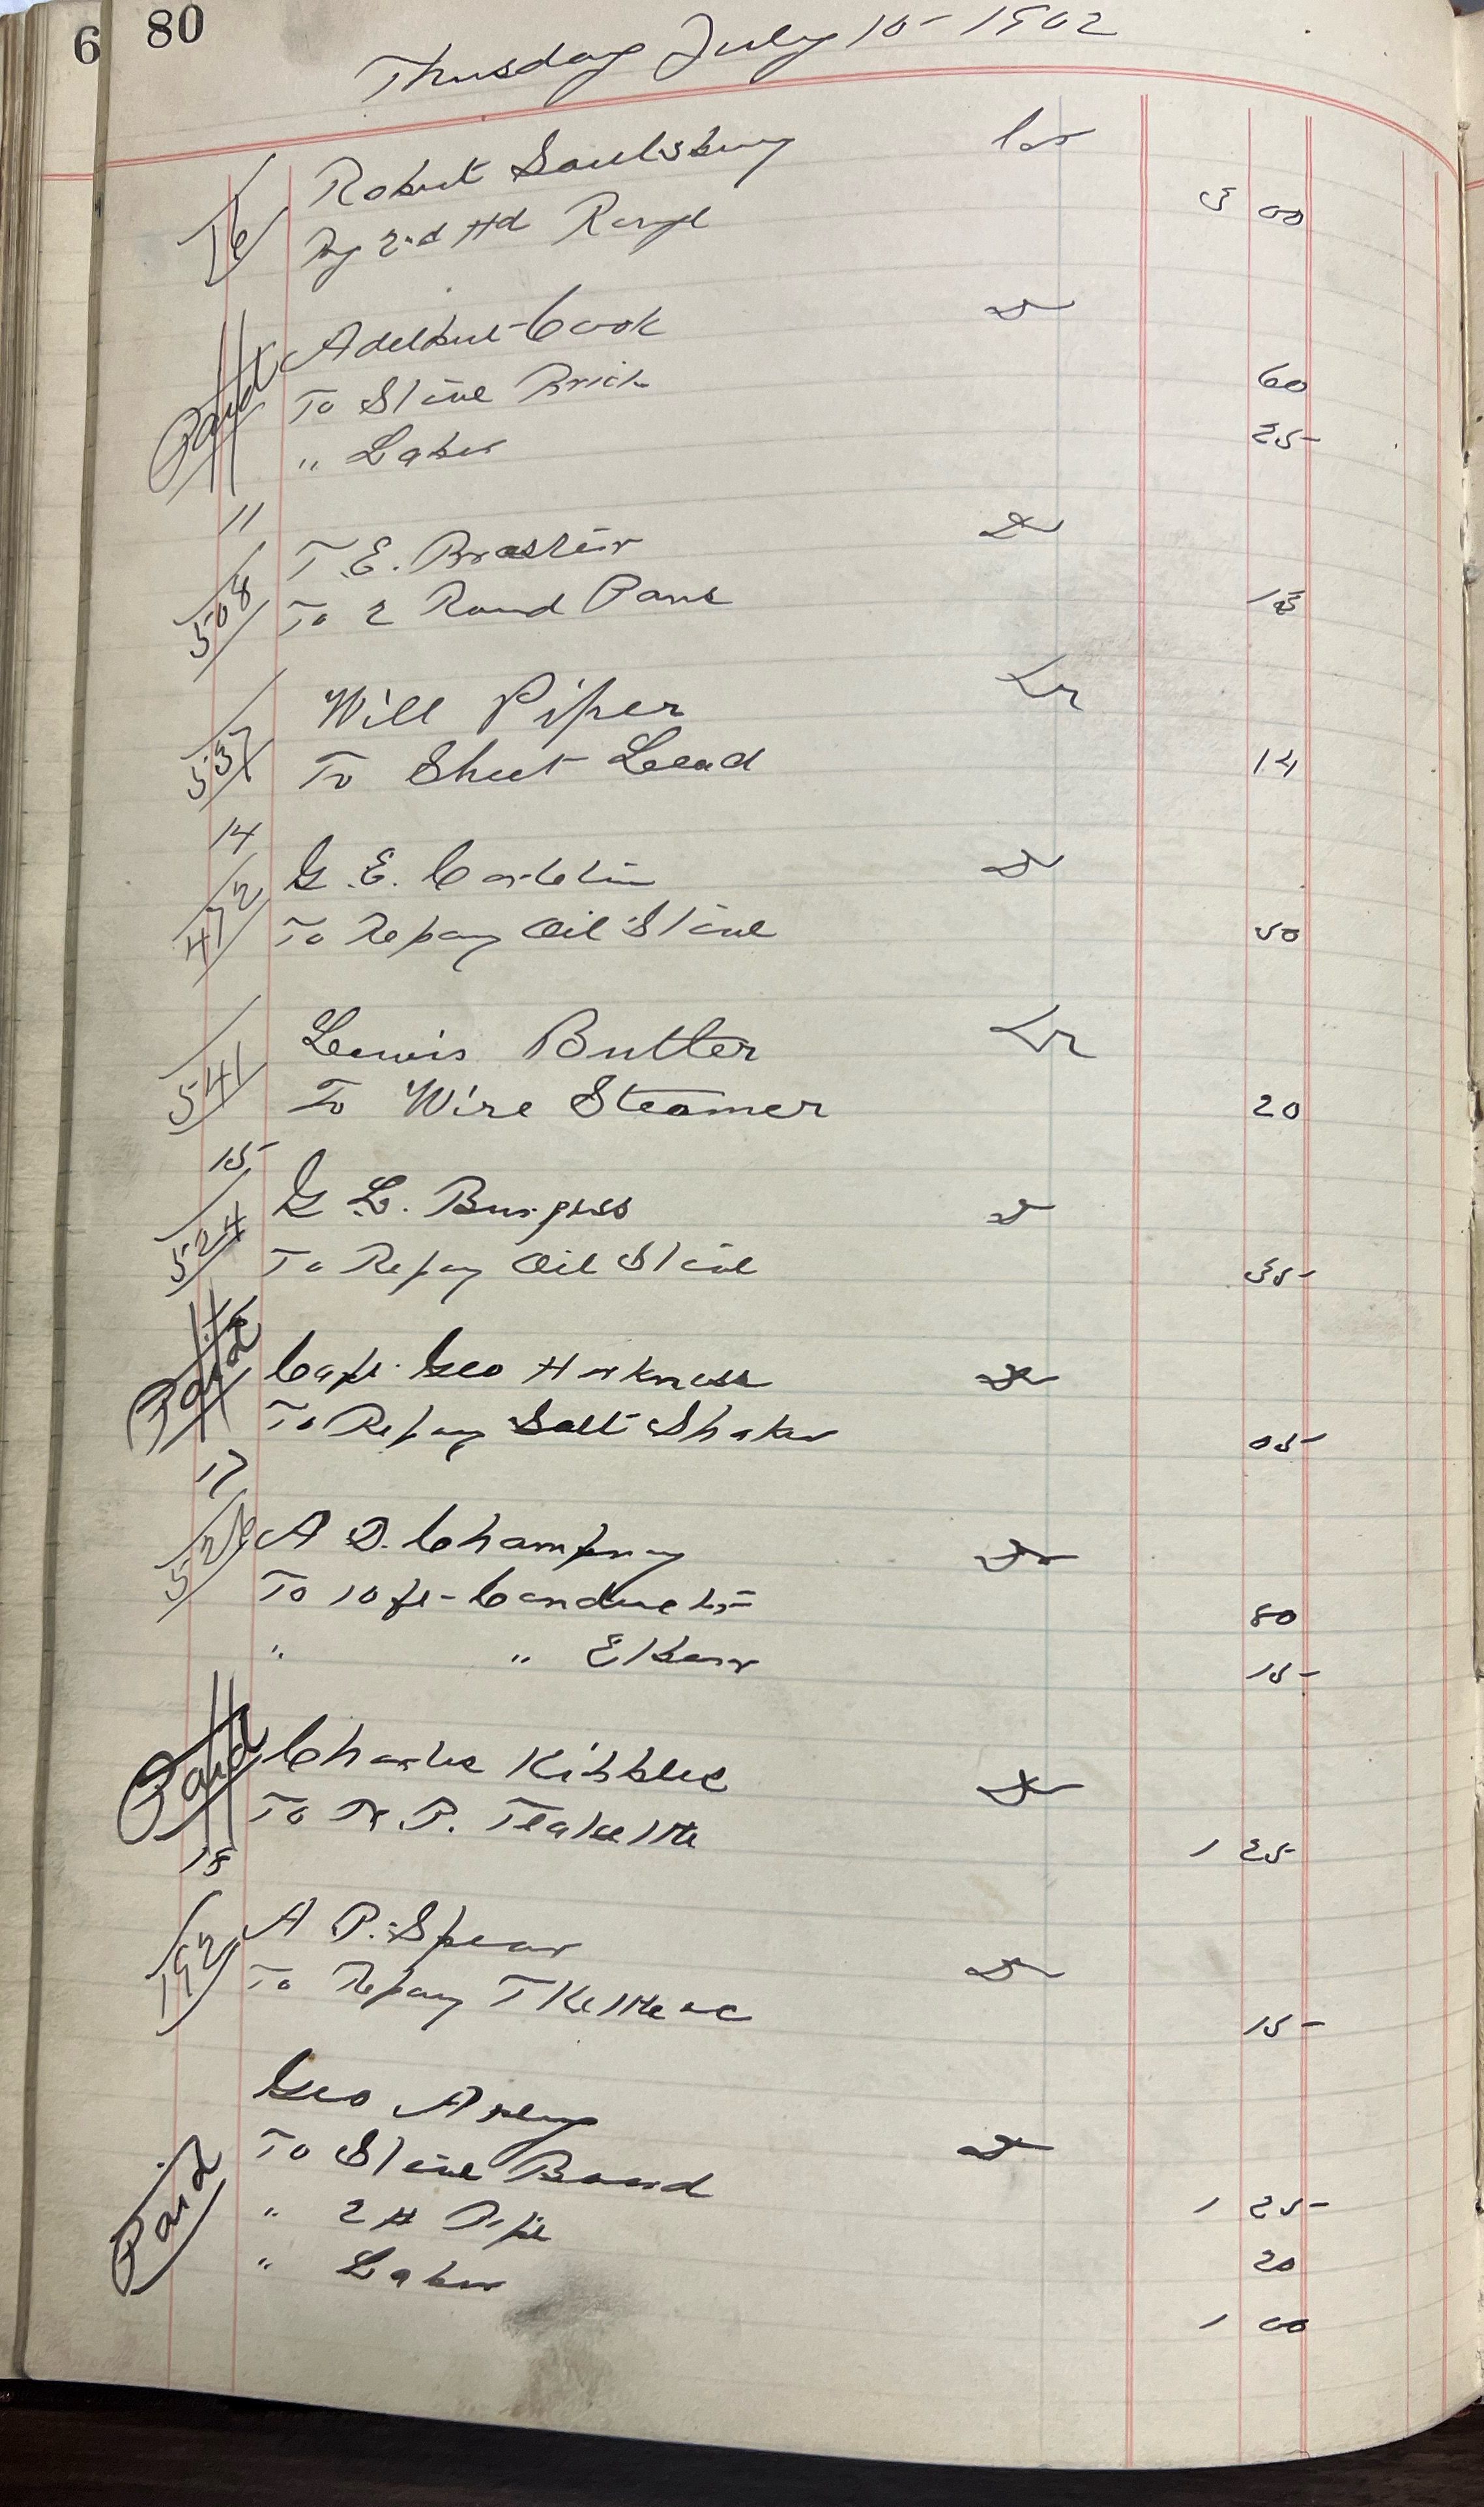 6 80
Thusday July 10 - 1902
Robert Saulsbury Cr
16 By 2nd Hd Range 3 00
Paid Adelbert Cook Dr
To Stove Brick 60
" Labor 25
11
T. E. Brastow Dr
508 To 2 Round Pans
Will Piper Dr
537 To Sheet Lead 14
14
G. E. Dr
472 To Repag Oil Stove 50
Lewis Butler Dr
541 To Wire Steamer 20
15
G. L. Burgess Dr
524 To Repag Oil Stove 35
Paid Capt. Geo Harkness Dr
To Repag Salt Shaker 05
17
A D. Champney Dr
526 To 10 ft - Conductor 80
" " Elbow 15
Paid Charles Kibble Dr
To N. P. Teakettle 1 25
18
A P. Spear Dr
192 To Repag T Kettle &c 15
Geo Arey Dr
Paid To Stove Board 1 25
" 2 # Pipe 20
" Labor 1 00